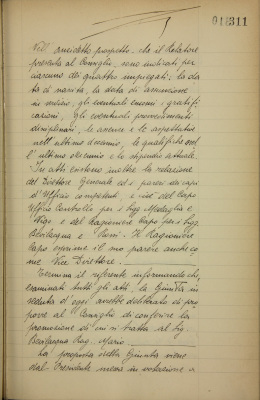 011311
Nell'anzidetto prospetto, che il Relatore
presenta al Consiglio, sono indicati per
ciascuno dei quattro impiegati; la da
ta di nascita, la data di assunzione
in servizio, gli eventuali encomi e gratifi
cazioni, gli eventuali provvedimenti
disciplinari, le assenze e le aspettative
nell'ultimo decennio, le qualifiche
l'ultimo decennio e lo stipendio attuale.
In atti esistono inoltre la relazione
del Direttore Generale ed i pareri dei capi
d'Ufficio competenti, e cioè del Capo
Ufficio Controllo per i Sigg. Medaglia e
e del Ragioniere Capo per i Sigg.
Bevilacqua e Il Ragioniere
Capo esprime il suo parere anche co
me Vice Direttore.
Termina il referente informando che,
esaminati tutti gli atti, la Giunta in
seduta d'oggi avrebbe deliberato di pro
porre al Consiglio di conferire la
promozione di cui si tratta al Sig.
Bevilacqua Rag. Mario.
La proposta della Giunta viene
dal Presidente messa in votazione a